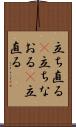 立ち直る
立ちな
おる立
直る